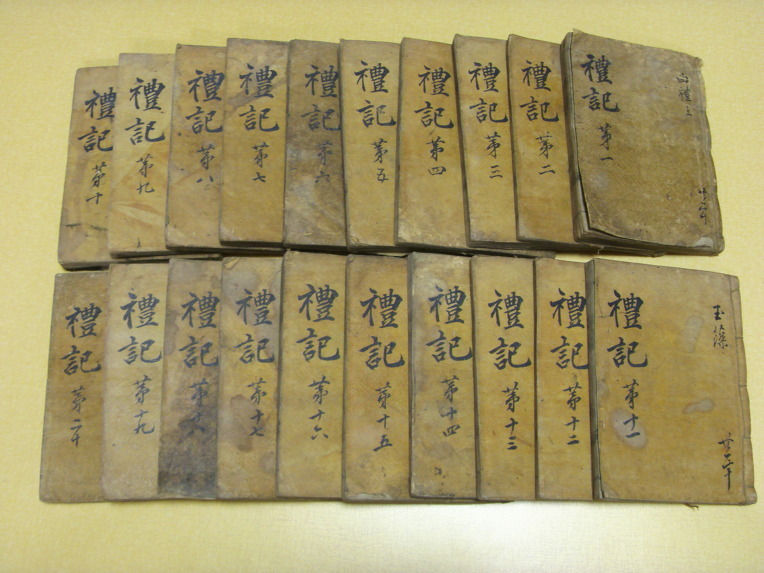 禮記 第一
曲禮上
禮記 第二
禮記 第三
禮記 第四
禮記 第五
禮記 第六
禮記 第七
禮記 第八
禮記 第九
禮記 第十
禮記 第十一
玉藻
禮記 第十二
禮記 第十三
禮記 第十四
禮記 第十五
禮記 第十六
禮記 第十七
禮記 第十八
禮記 第十九
禮記 第二十